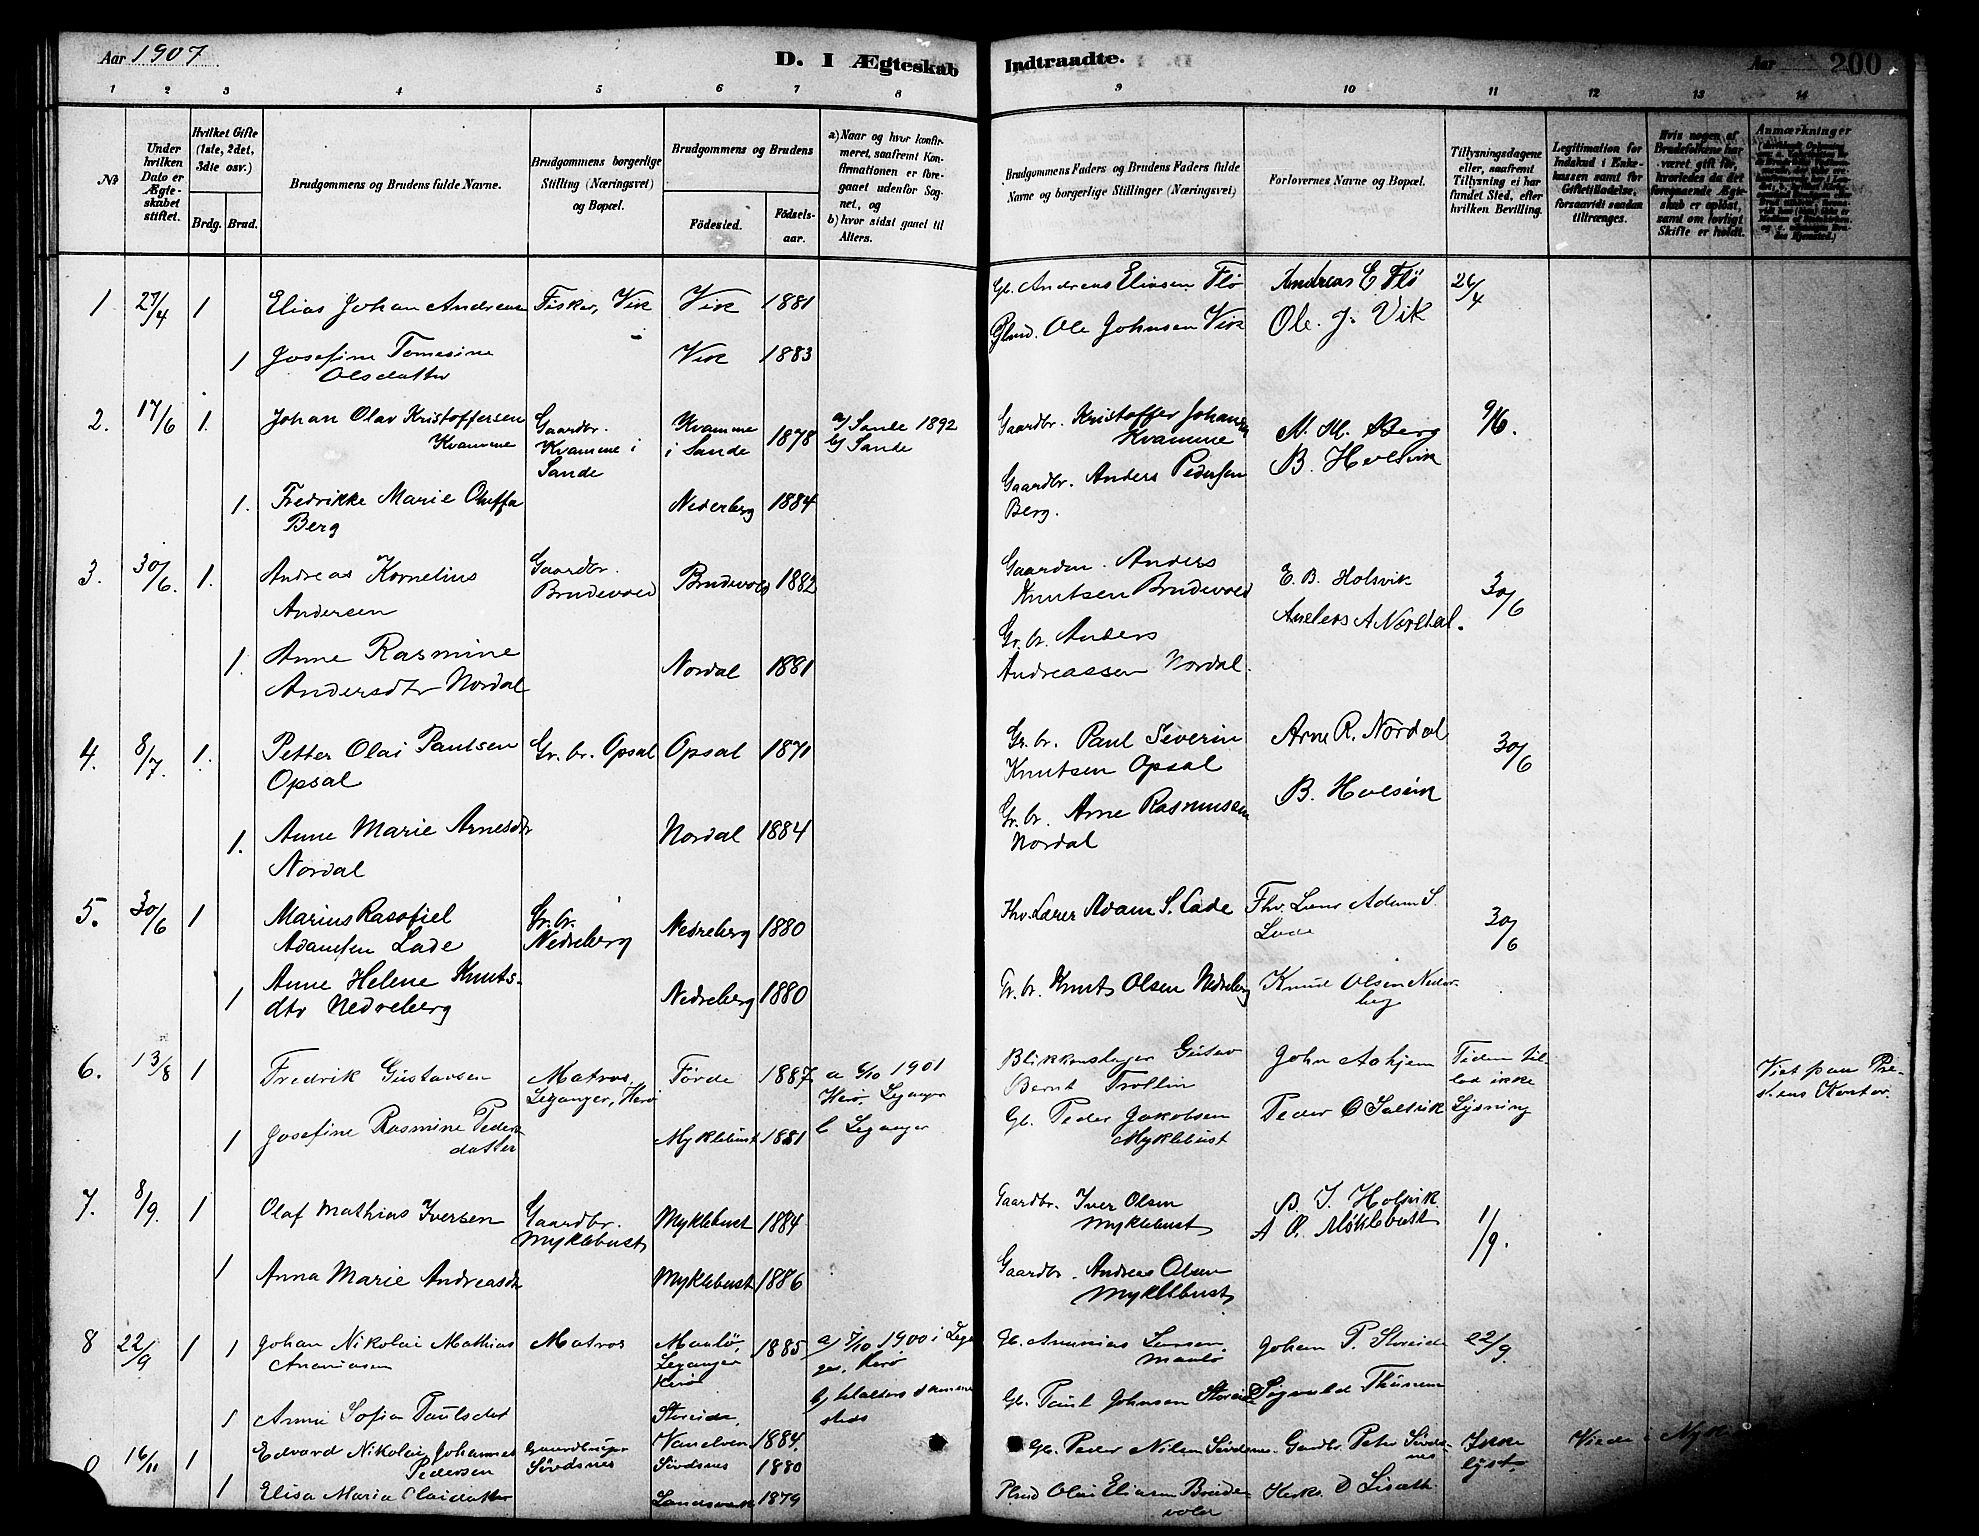 Aar 1907
D. I Ægteskab
Indtraadte.
Aar
200
1 2 3 4 5 6 7 8 9 10 11 12 13 14
№
Under hvilken Dato er Ægteskabet stiftet.
Hvilket Gifte (1ste, 2det, 3die osv.)
Brdg. Brud.
Brudgommens og Brudens fulde Navne.
Brudgommens borgerlige Stilling (Næringsvei) og Bopæl.
Brudgommens og Brudens
Födested.
Födsels-aar.
a) Naar og hvor konfirmeret, saafremt Konfirmationen er foregaaet udenfor Sognet, og
b) hvor sidst gaaet til Alters.
Brudgommens Faders og Brudens Faders fulde Navne og borgerlige Stillinger (Næringsvei)
Forlovernes Navne og Bopæl.
Tillysningsdagene eller, saafremt Tillysning ei har fundet Sted, efter hvilken Bevilling.
Legitimation for Indskud i Enkekassen samt for Giftetilladelse, forsaavidt saadan tiltrænges.
Hvis nogen af Brudefolkene har været gift før, hvorledes da det foregaaende Ægteskab er opløst, samt om lovligt Skifte er holdt.
Anmærkninger
1 27/4 1 Elias Johan Andreas Fisker, Vik Vik 1881 Gb. Andreas Eliasen Flö Andreas E Flö 26/4
Ole Johnsen Vik Ole. J. Vik
1 Josefine Tomesine Vik 1883
Olsdatter
2. 17/6 1. Johan Olav Kristoffersen Gaardbr. Kvamme 1878 a) Sande 1892 Gaardbr. Kristoffer Johansen N. M. Berg 9/6.
Kvamme Kvamme i i Sande b) Sande Kvamme B. Holsvik
Sande Gaardbr. Anders Pedersen
1. Fredrikke Marie Oluffa Nederberg 1884 Berg.
Berg
3. 30/6. 1. Andreas Kornelius Gaardbr. Brudevold 1882 Gaardm. Anders E. B. Holsvik 30/6
Andersen Brudevold Knutsen Brudevold Anders A Nordal.
1. Anne Rasmine Nordal 1881 Gr. br. Anders
Andersdtr Nordal Andreassen Nordal.
4. 8/7. 1. Petter Olai Paulsen Gr. br. Opsal Opsal 1871 Gr. br. Paul Severin Arne R. Nordal 30/6
Opsal Knutsen Opsal
B. Holsvik
1. Anne Marie Arnesdtr Nordal 1884 Gr. br. Arne Rasmussen
Nordal Nordal
5. 30/6 1 Marius Rasofiel Gr. br. Nedreberg 1880 Fhv. Lærer Adam S. Lade Fhv. Lærer Adam S. 30/6
Adamsen Lade Nedreberg Lade
1 Anne Helene Knuts- Nedreberg 1880 Gr. br. Knut Olsen Nedreberg Knud Olsen Neder-
dtr Nedreberg berg
6. 13/8 1 Fredrik Gustavsen Matros Förde 1887 a 6/10 1901 Blikkenslager Gustav John Aahjem Tiden til-
Leganger, Herö Herö, Leganger Bernt Trollin lod ikke
1 Josefine Rasmine Peders- Myklebust 1881 b Leganger Gb. Peder Jakobsen Peder O Saltvik Lysning
datter Myklebust
Viet paa Præ-
stens Kontor.
7. 8/9. 1 Olaf Mathias Iversen Gaardbr. Myklebust 1884 Gaardbr. Iver Olsen B. J. Holsvik 1/9.
Myklebust Myklebust A O. Møklebust
1 Anna Marie Andreasdtr Myklebust 1886 Gaardbr. Andreas Olsen
Myklebust
8 22/9 1 1 Johan Nikolai Mathias Matros Maalö, 1885 a) 7/10 1900 i Legan- Gb. Ananias Johan P. Storeide 22/9.
Ananiasen Leganger ger, Herö Maalö
Herö
1 Anne Sofia Paulsdtr Storeide, steds Gb. Paul Johnsen Storeide Sigvald Thunem
16/11 1 Edvard Nikolai Johannes Gaardbruger Vanelven 1884. Gb. Peder Nilsen Sövdsnes Gaardbr. Peter Sövds- Ikke Viede i
Pedersen Sövdsnes Sövdsnes 1880 nes lyst.
1 Elisa Maria Olaidatter 1879 Olai Eliasen Brude- D Lisæth
vold